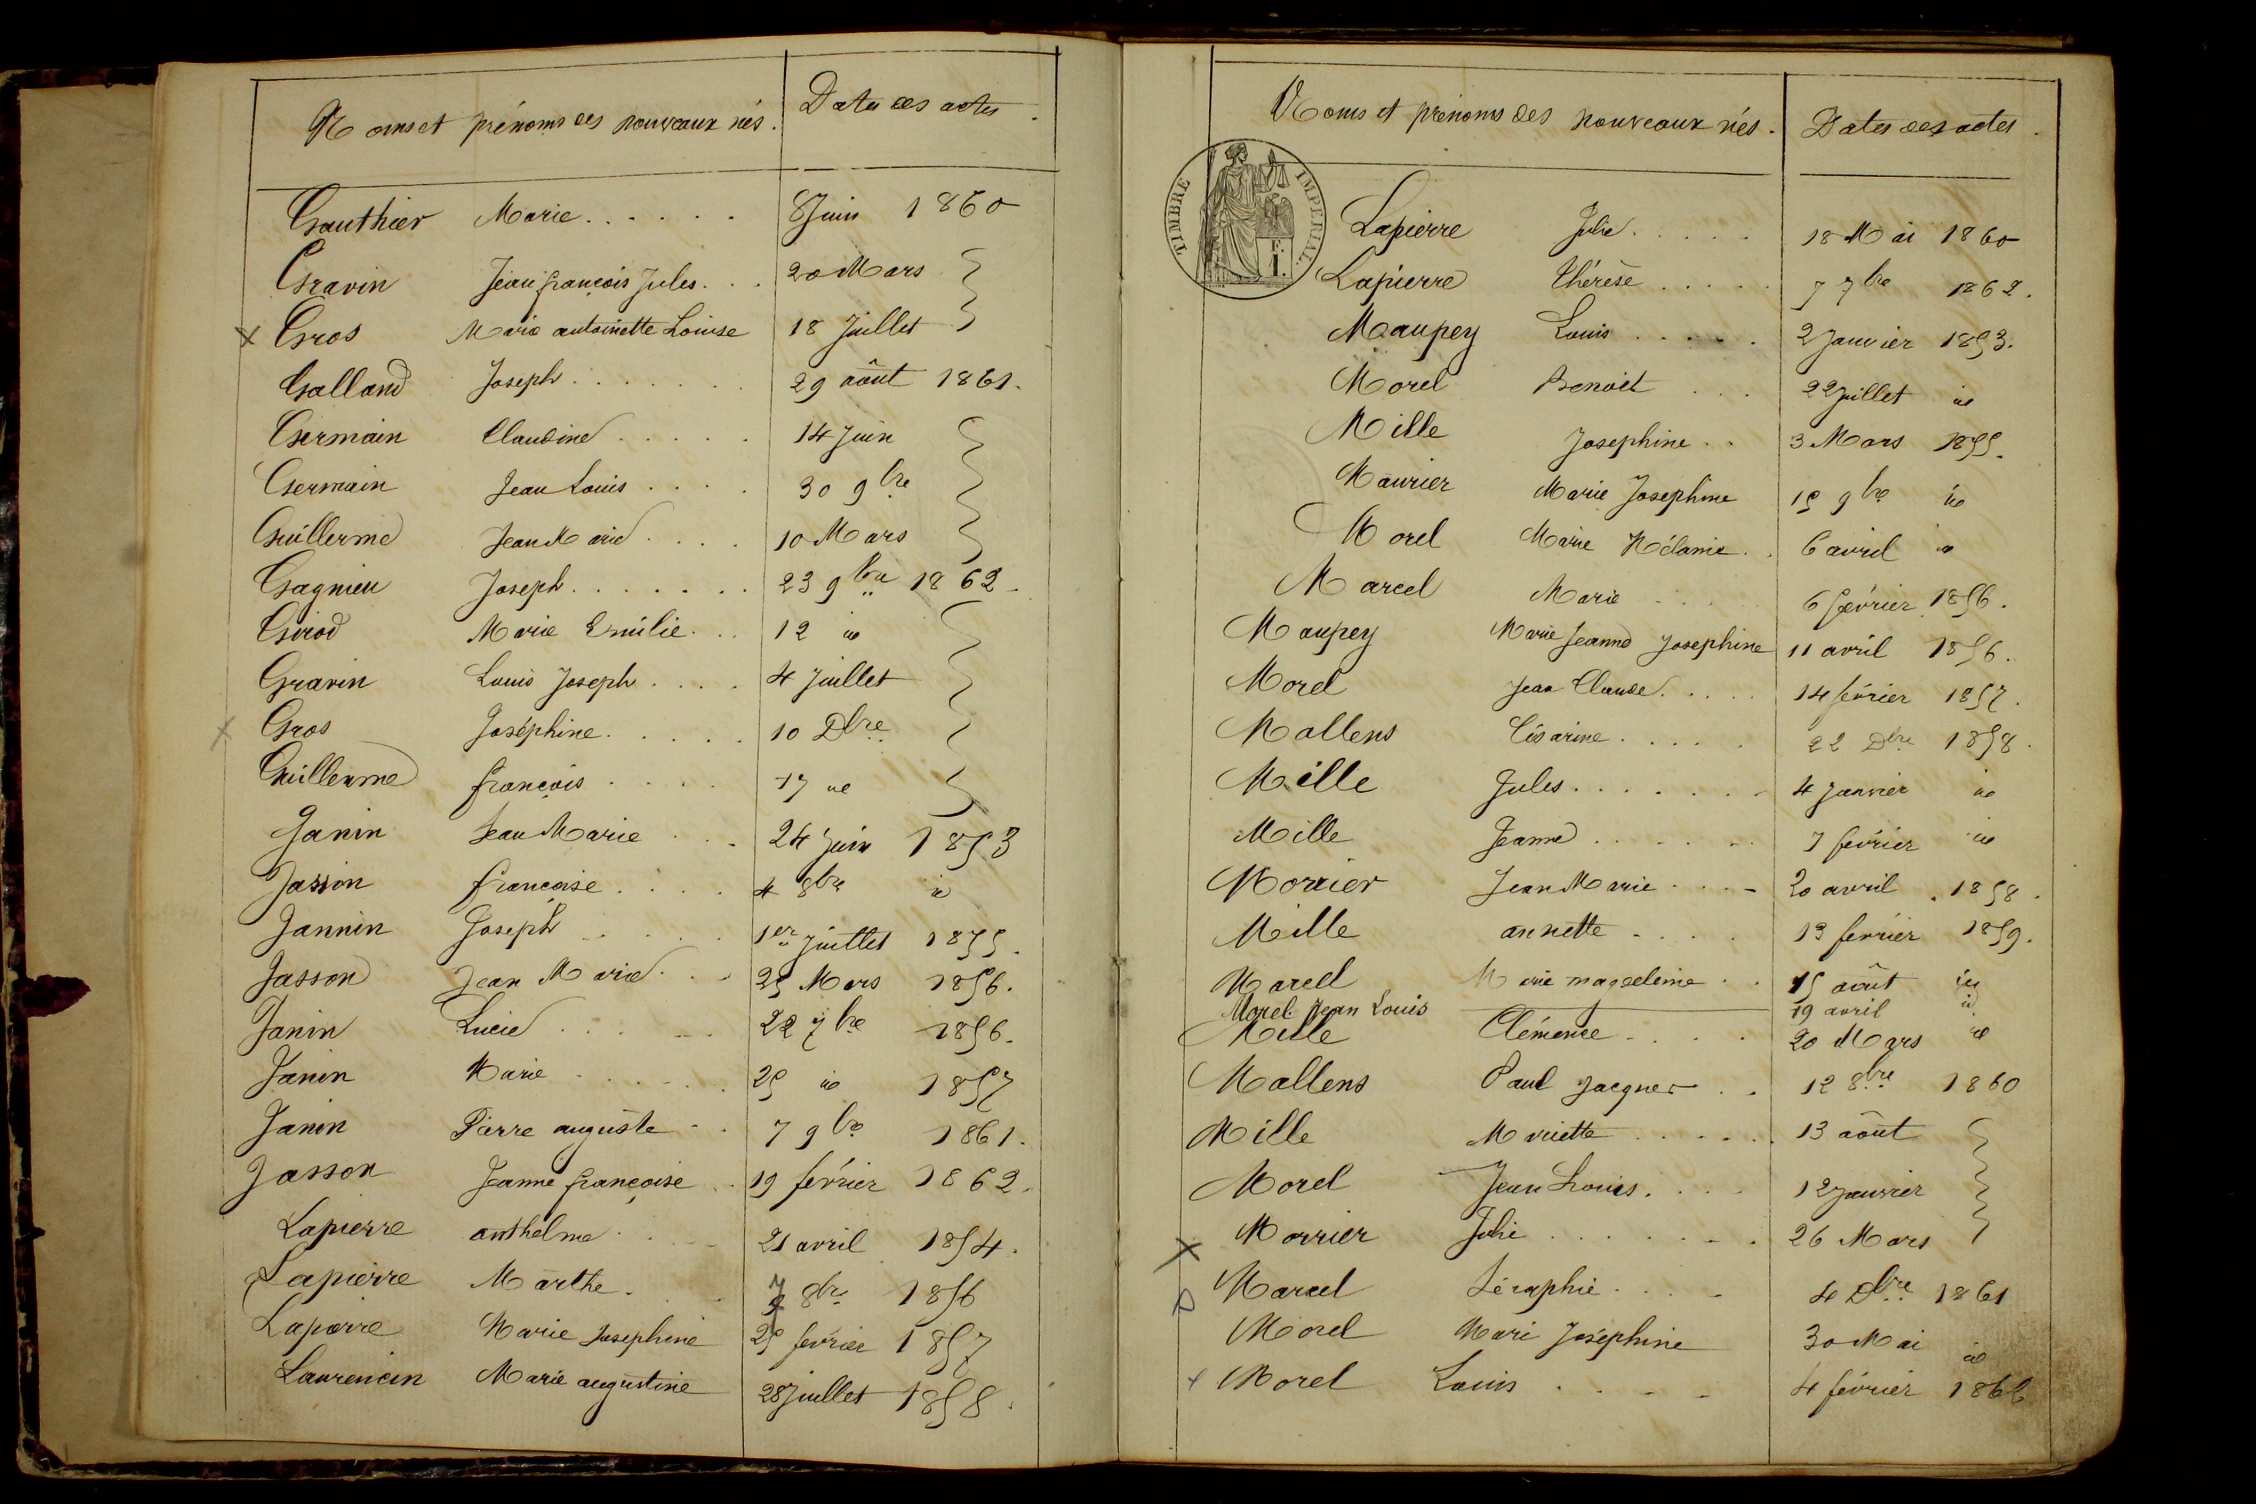 Noms et prénoms des nouveaux nés. Dates des actes.
Gauthier Marie...... 8 Juin 1860
Gravin Jean françois Jules... 20 Mars
x Gros Marie antoinette Louise 18 Juillet
Galland Joseph....... 29 août 1861.
Germain Claudine..... 14 Juin
Germain Jean Louis.... 30 9bre
Guillerme Jean Marie.... 10 Mars
Gagnieu Joseph....... 23 9bre 1862.
Girod Marie Emilie... 12 id
Gravin Louis Joseph.... 4 Juillet
x Gros Joséphine..... 10 Dbre
Guillerme françois.... 17 id
Janin Jean Marie... 24 juin 1853
Jasson françoise.... 4 8bre id
Jannin Joseph..... 1er juillet 1855.
Jasson Jean Marie... 25 Mars 1856.
Janin Lucie..... 22 7bre 1856.
Janin Marie..... 25 id 1857
Janin Pierre auguste.. 7 9bre 1861.
Jasson Jeanne françoise.. 19 février 1862.
Lapierre anthelme.... 21 avril 1854.
Lapierre Marthe.... 8bre 1856
Lapierre Marie Josephine 25 février 1857
Laurencin Marie augustine 28 Juillet 1858.
Noms et prénoms des nouveaux nés. Dates des actes.
TIMBRE IMPERIAL.
Lapierre Julie..... 18 Mai 1860
Lapierre Thérèse..... 7 7bre 1862.
Maupey Louis..... 2 Janvier 1853.
Morel Benoit... 22 Juillet id
Mille Josephine.. 3 Mars 1855.
Maurier Marie Josephine 15 9bre id
Morel Marie Mélanie.. 6 avril id
Marcel Marie.... 6 février 1856.
Maupey Marie Jeanne Josephine 11 avril 1856.
Morel Jean Claude..... 14 février 1857.
Mallens Césarine..... 22 Dbre 1858.
Mille Jules....... 4 Janvier id
Mille Jeanne....... 7 février id
Morrier Jean Marie.... 20 avril. 1858.
Mille annette.... 13 février 1859.
Marcel Marie magdeleine.. 15 août id
Morel Jean Louis 19 avril id
Mille Clémence.... 20 Mars id
Mallens Paul Jacques.. 12 8bre 1860
Mille Mariette...... 13 août
Morel Jean Louis.... 12 Janvier
x Morrier Julie....... 26 Mars
Marcel Séraphie.... 4 Dbre 1861
Morel Marie Joséphine 30 Mai id
x Morel Louis.... 4 février 1862